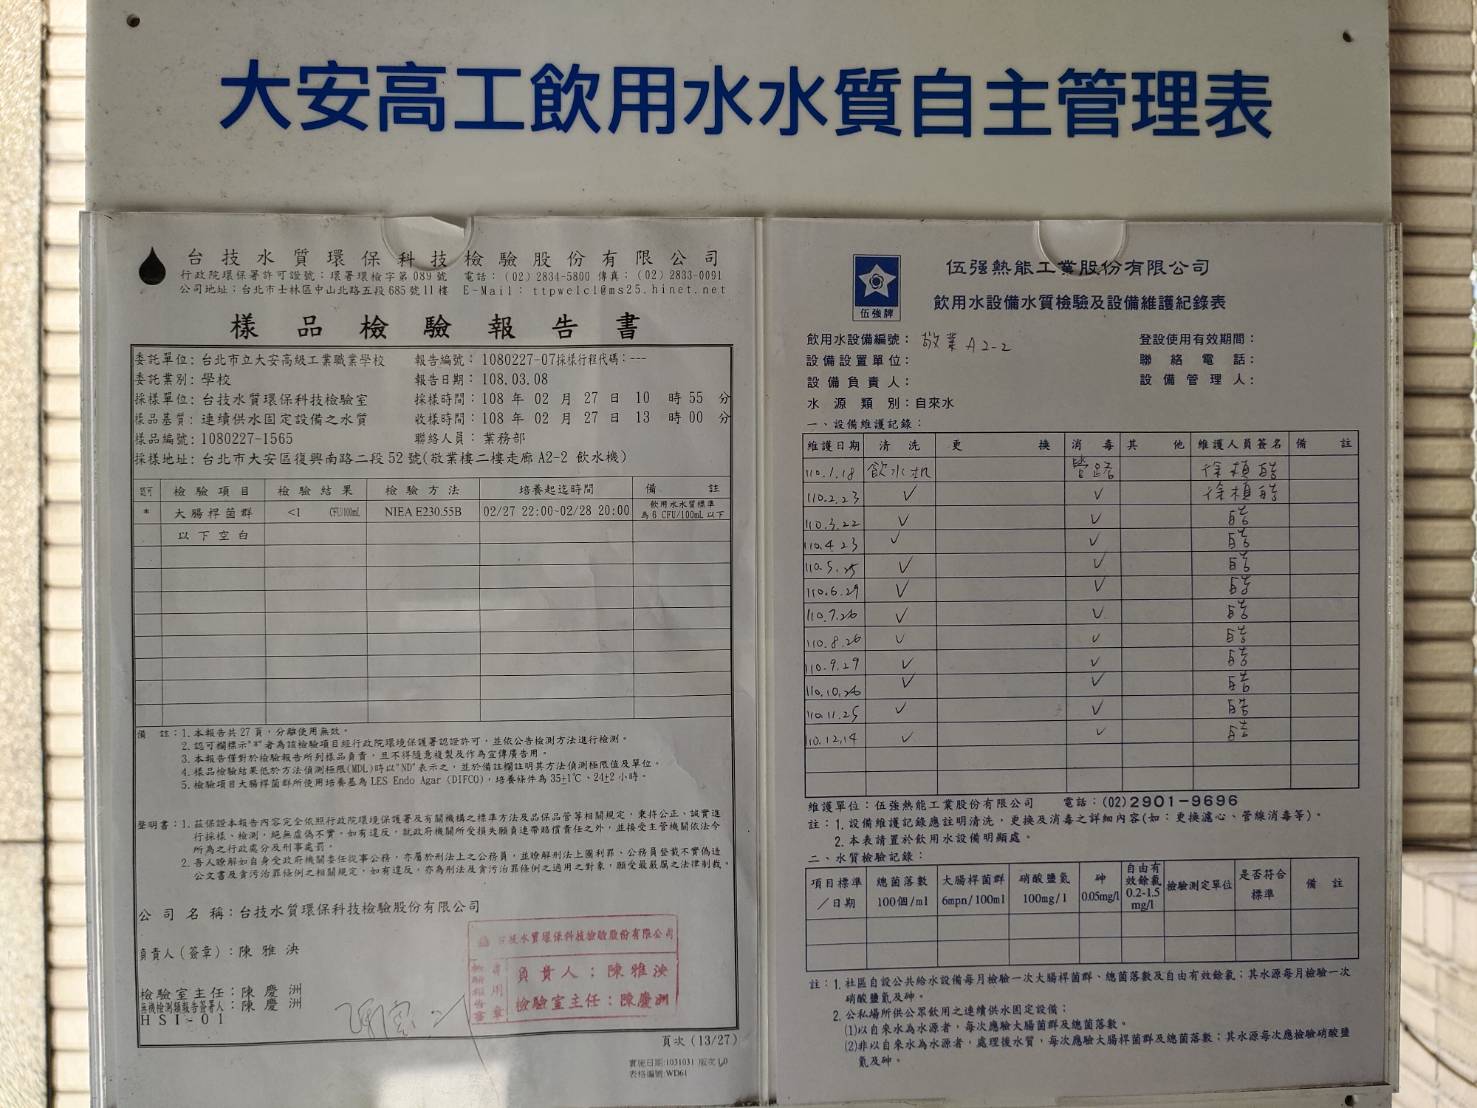 大安高工飲用水水質自主管理表
台技水質環保科技檢驗股份有限公司
行政院環保署許可證號：環署環檢字第089號 電話：(02) 2834-5800 傳真：(02) 2833-0091
公司地址：台北市士林區中山北路五段685號11樓 E-Mail： ttpwelcl@ms25.hinet.net
樣品檢驗報告書
委託單位：台北市立大安高級工業職業學校 報告編號：1080227-07採樣行程代碼：---
委託業別：學校 報告日期：108.03.08
採樣單位：台技水質環保科技檢驗室 採樣時間：108 年 02 月 27 日 10 時 55 分
樣品基質：連續供水固定設備之水質 收樣時間：108 年 02 月 27 日 13 時 00 分
樣品編號：1080227-1565 聯絡人員：業務部
採樣地址：台北市大安區復興南路二段52號(敬業樓二樓走廊A2-2 飲水機)
認可 檢驗項目 檢驗結果 檢驗方法 培養起迄時間 備註
* 大腸桿菌群 <1 CFU/100mL NIEA E230.55B 02/27 22:00~02/28 20:00 飲用水水質標準為6 CFU/100mL以下
以下空白
備 註：1.本報告共27頁，分離使用無效。
2.認可欄標示"*"者為該檢驗項目經行政院環境保護署認證許可，並依公告檢測方法進行檢測。
3.本報告僅對於檢驗報告所列樣品負責，且不得隨意複製及作為宣傳廣告用。
4.樣品檢驗結果低於方法偵測極限(MDL)時以"ND"表示之，並於備註欄註明其方法偵測極限值及單位。
5.檢驗項目大腸桿菌群所使用培養基為 LES Endo Agar (DIFCO)，培養條件為35±1℃、24±2小時。
聲明書：1.茲保證本報告內容完全依照行政院環境保護署及有關機構之標準方法及品保品管等相關規定，秉持公正、誠實進
行採樣、檢測，絕無虛偽不實，如有違反，就政府機關所受損失願負連帶賠償責任之外，並接受主管機關依法令
所為之行政處分及刑事處罰。
2.吾人瞭解如自身受政府機關委任從事公務，亦屬於刑法上之公務員，並瞭解刑法上圖利罪、公務員登載不實偽造
公文書及貪污治罪條例之相關規定，如有違反，亦為刑法及貪污治罪條例之適用之對象，願受最嚴厲之法律制裁。
公司名稱：台技水質環保科技檢驗股份有限公司
負責人(簽章)：陳雅泱
檢驗室主任：陳慶洲
無機檢測類報告簽署人：陳慶洲
HSI-01
台技水質環保科技檢驗股份有限公司
檢驗報告專用章
負責人：陳雅泱
檢驗室主任：陳慶洲
頁次 (13/27)
實施日期:1031031 版次1.0
表格編號:WD61
伍強牌
伍强熱能工業股份有限公司
飲用水設備水質檢驗及設備維護紀錄表
飲用水設備編號：敬業A2-2 登設使用有效期間：
設備設置單位： 聯絡電話：
設備負責人： 設備管理人：
水源類別：自來水
一、設備維護記錄：
維護日期 清洗 更換 消毒 其他 維護人員簽名 備註
110.1.18 飲水机
110.2.23 ✓ ✓
110.3.22 ✓ ✓
110.4.23 ✓ ✓
110.5.25 ✓ ✓
110.6.29 ✓ ✓
110.7.26 ✓ ✓
110.8.26 ✓ ✓
110.9.29 ✓ ✓
110.10.26 ✓ ✓
110.11.25 ✓ ✓
110.12.14 ✓ ✓
維護單位：伍強熱能工業股份有限公司 電話：(02)2901-9696
註：1.設備維護記錄應註明清洗，更換及消毒之詳細內容(如：更換濾心、管線消毒等)。
2.本表請置於飲用水設備明顯處。
二、水質檢驗記錄：
項目標準／日期 總菌落數100個/ml 大腸桿菌群6mpn/100ml 硝酸鹽氮100mg/l 砷0.05mg/l 自由有效餘氯0.2-1.5mg/l 檢驗測定單位 是否符合標準 備註
註：1.社區自設公共給水設備每月檢驗一次大腸桿菌群、總菌落數及自由有效餘氯；其水源每月檢驗一次
硝酸鹽氮及砷。
2.公私場所供公眾飲用之連續供水固定設備：
(1)以自來水為水源者，每次應驗大腸桿菌群及總菌落數。
(2)非以自來水為水源者，處理後水質，每次應驗大腸桿菌群及總菌落數；其水源每次應檢驗硝酸鹽
氮及砷。